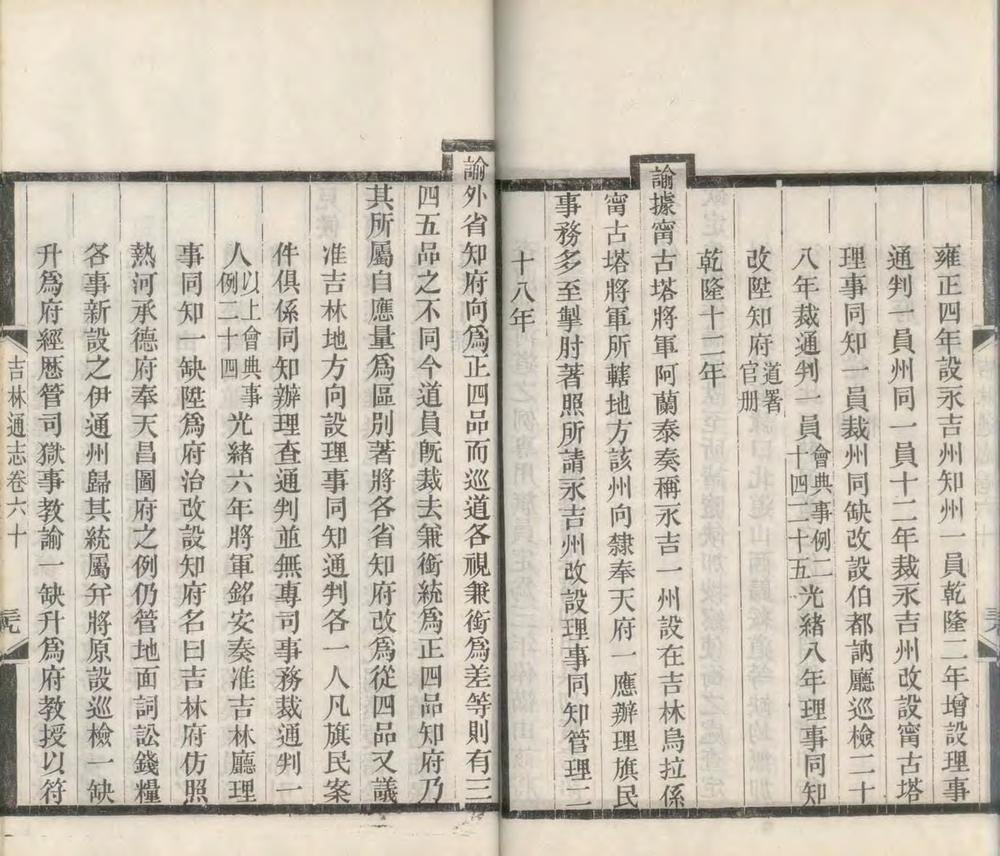 雍正四年設永吉州知州一員乾隆二年增設理事
通判一員州同一員十二年裁永吉州改設甯古塔
理事同知一員裁州同缺改設伯都訥廳巡檢二十
八年裁通判一員會典事例二十四二十五光緒八年理事同知
改陞知府道署官册
乾隆十二年
諭據甯古塔將軍阿蘭泰奏稱永吉一州設在吉林烏拉係
甯古塔將軍所轄地方該州向隸奉天府一應辦理旗民
事務多至掣肘著照所請永吉州改設理事同知管理二
十八年
諭外省知府向爲正四品而巡道各視兼銜爲差等則有三
四五品之不同今道員旣裁去兼銜統爲正四品知府乃
其所屬自應量爲區別著將各省知府改爲從四品又議
准吉林地方向設理事同知通判各一人凡旗民案
件俱係同知辦理查通判並無專司事務裁通判一
人以上會典事例二十四光緒六年將軍銘安奏准吉林廳理
事同知一缺陞爲府治改設知府名曰吉林府仿照
熱河承德府奉天昌圖府之例仍管地面詞訟錢糧
各事新設之伊通州歸其統屬并將原設巡檢一缺
升爲府經歷管司獄事教諭一缺升爲府教授以符
吉林通志卷六十